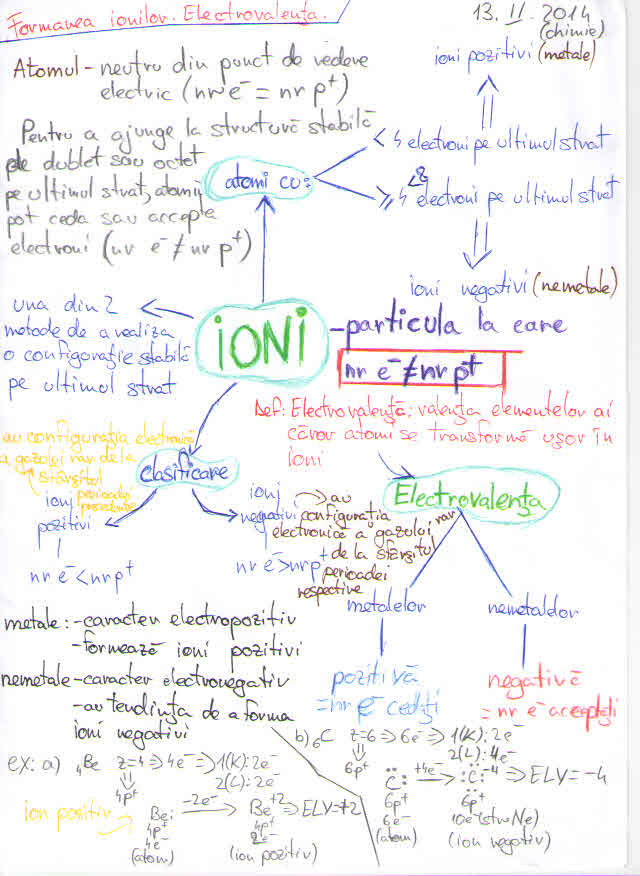 Formarea ionilor. Electrovalența.
13. II. 2014
(chimie)
Atomul - neutru din punct de vedere
electric (nr e⁻ = nr p⁺)
Pentru a ajunge la structură stabilă
de dublet sau octet
pe ultimul strat, atomii
pot ceda sau accepta
electroni (nr e⁻ ≠ nr p⁺)
atomi cu:
ioni pozitivi (metale)
< 4 electroni pe ultimul strat
≥ 4 <8 electroni pe ultimul strat
ioni negativi (nemetale)
una din 2
metode de a realiza
o configurație stabilă
pe ultimul strat
IONI
- particula la care
nr e⁻ ≠ nr p⁺
Def: Electrovalență: valența elementelor ai
căror atomi se transformă ușor în
ioni
au configurația electronică
a gazului rar de la
sfârșitul
perioadei
precedente
clasificare
ioni
pozitivi
nr e⁻ < nr p⁺
ioni
negativi
nr e⁻ > nr p⁺
au
configurația
electronică a gazului rar
de la sfârșitul
perioadei
respective
Electrovalența
metalelor
nemetalelor
pozitivă
= nr e⁻ cedați
negativă
= nr e⁻ acceptați
metale: - caracter electropozitiv
- formează ioni pozitivi
nemetale - caracter electronegativ
- au tendința de a forma
ioni negativi
ex: a) ₄Be z=4 ⇒ 4e⁻ ⇒ 1(K): 2e⁻
2(L): 2e⁻
4p⁺
ion positiv
Be: -2e⁻ → Be⁺² ⇒ ELV=+2
4p⁺ 4p⁺
4e⁻ 2e⁻
(atom) (ion pozitiv)
b) ₆C z=6 ⇒ 6e⁻ ⇒ 1(K): 2e⁻
2(L): 4e⁻
6p⁺
C: +4e⁻ → :C:⁻⁴ ⇒ ELV=-4
6p⁺ 6p⁺
6e⁻ 10e⁻ (str Ne)
(atom) (ion negativ)